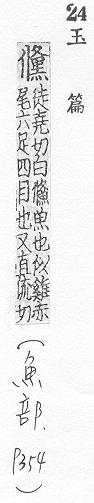 24 玉篇
鯈
徒堯切白鯈魚也似雞赤
尾六足四目也又直流切
(魚部. P354)